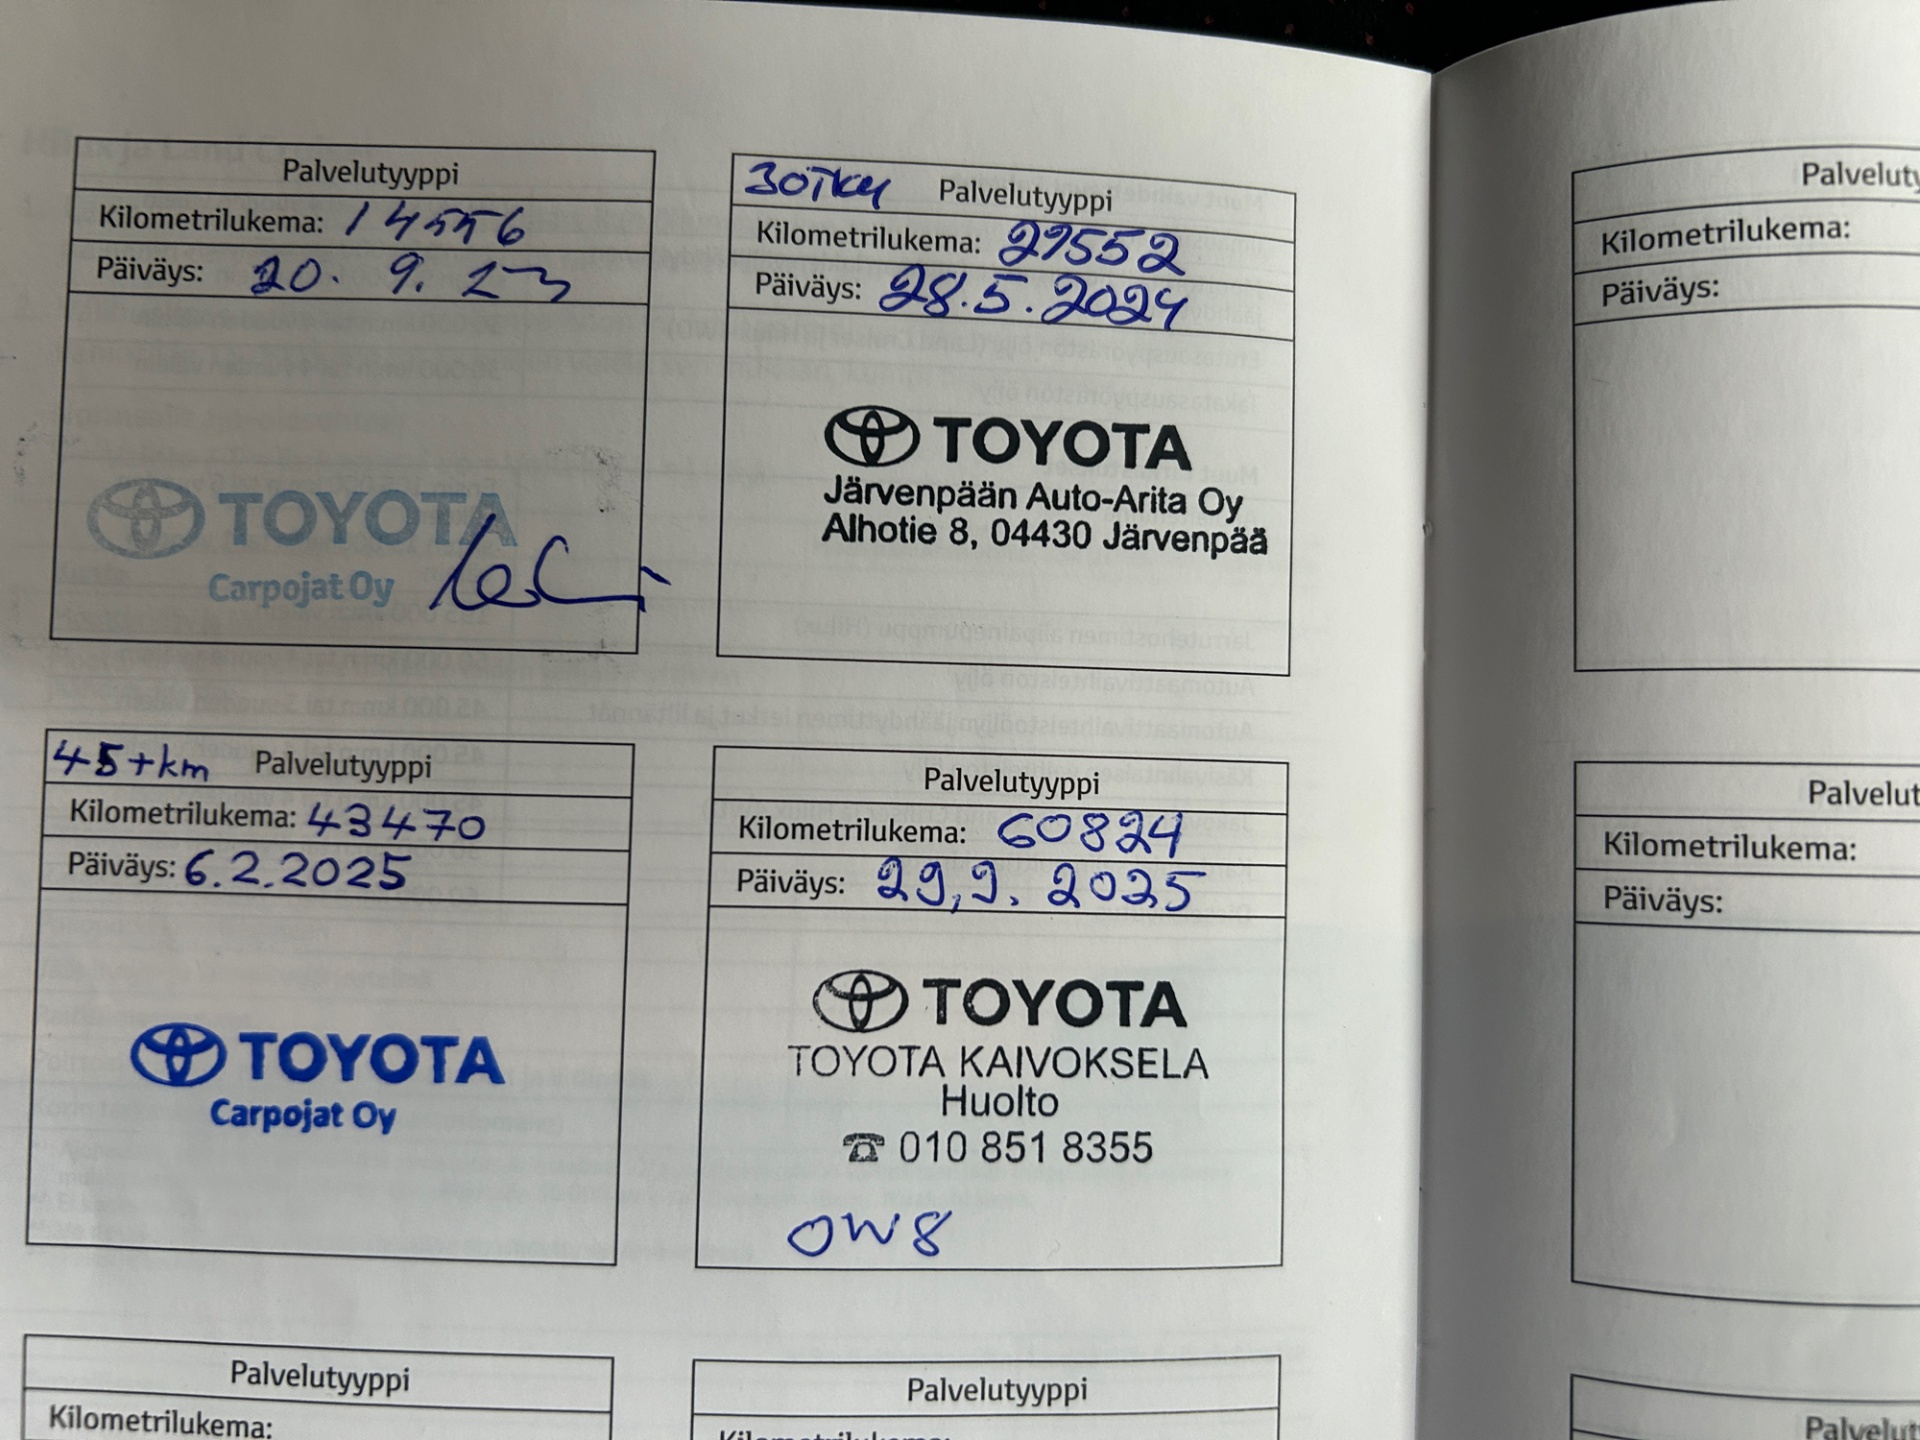 Palvelutyyppi
Kilometrilukema: 14556
Päiväys: 20. 9. 23
TOYOTA
Carpojat Oy
30TKM Palvelutyyppi
Kilometrilukema: 27552
Päiväys: 28.5.2024
TOYOTA
Järvenpään Auto-Arita Oy
Alhotie 8, 04430 Järvenpää
45tkm Palvelutyyppi
Kilometrilukema: 43470
Päiväys: 6.2.2025
TOYOTA
Carpojat Oy
Palvelutyyppi
Kilometrilukema: 60824
Päiväys: 29,9. 2025
TOYOTA
TOYOTA KAIVOKSELA
Huolto
☎ 010 851 8355
OW8
Palvelutyyppi
Kilometrilukema:
Palvelutyyppi
Kilometrilukema:
Palveluty
Kilometrilukema:
Päiväys:
Palvelut
Kilometrilukema:
Päiväys:
Palvelut